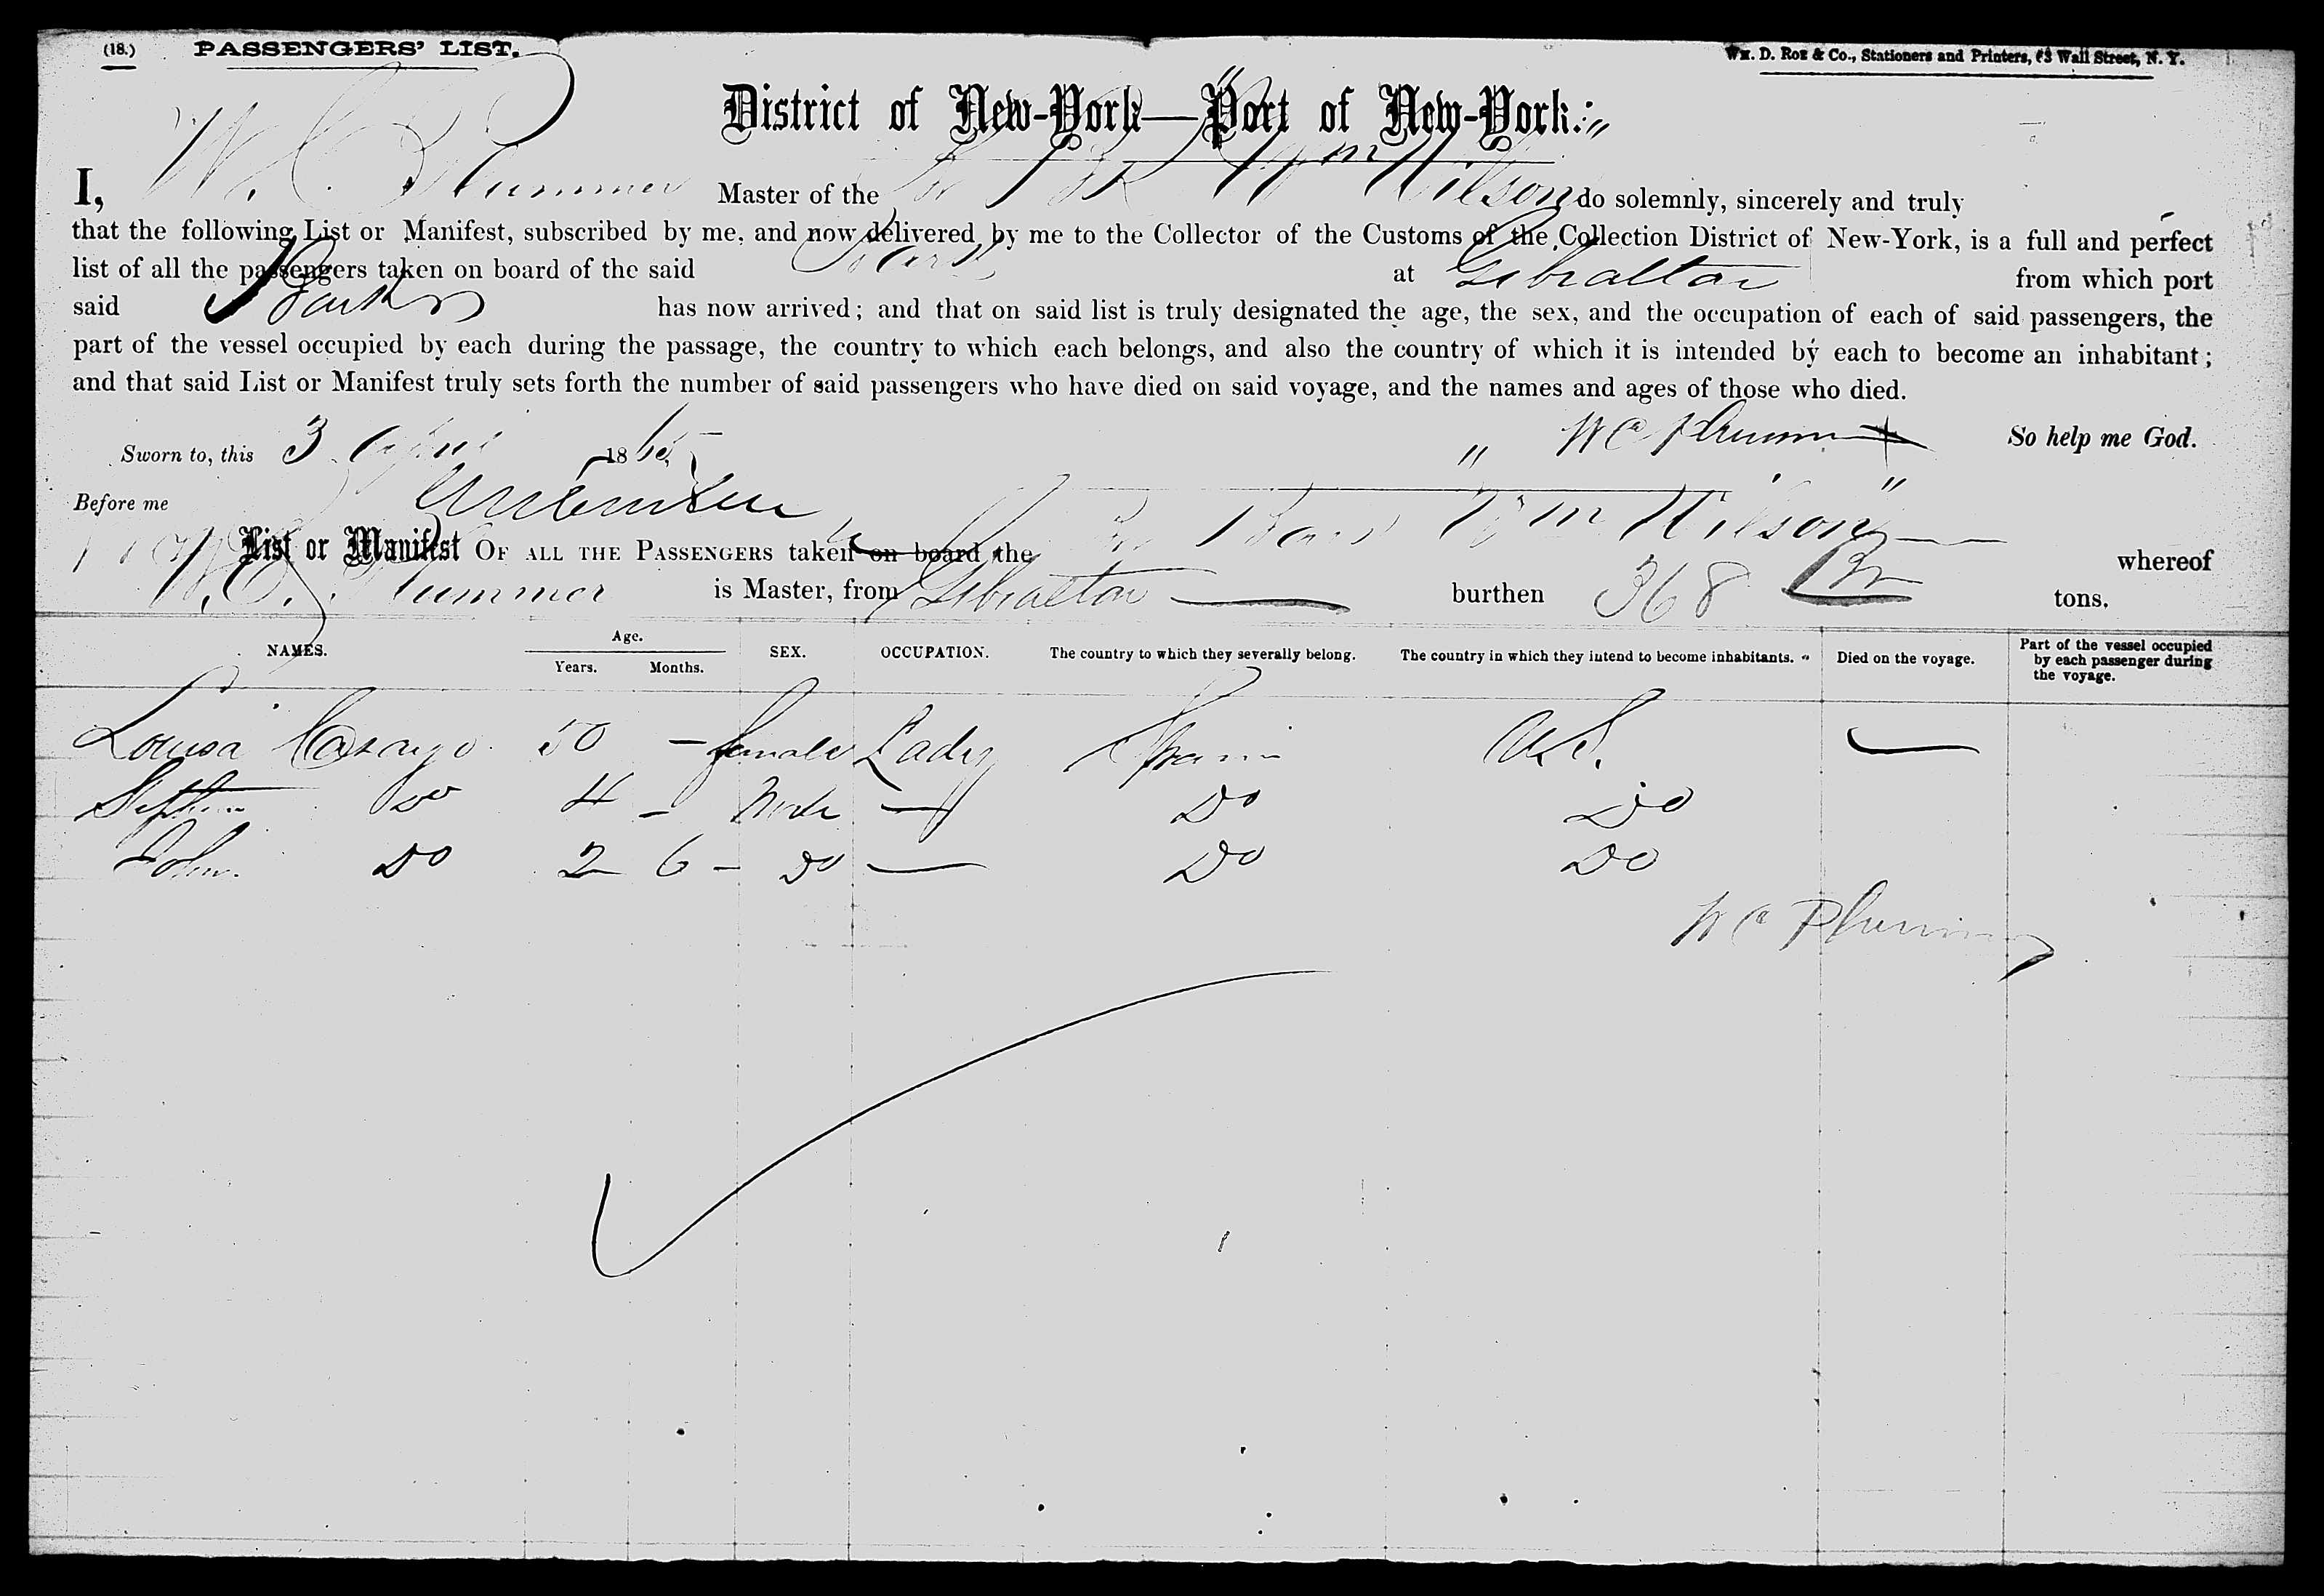 (18.) PASSENGERS' LIST. Wm. D. Roe & Co., Stationers and Printers, 63 Wall Street, N. Y.
District of New-York—Port of New-York:
I, W. C. Plummer Master of the Wm Wilson do solemnly, sincerely and truly
that the following List or Manifest, subscribed by me, and now delivered by me to the Collector of the Customs of the Collection District of New-York, is a full and perfect
list of all the passengers taken on board of the said Bark at Gibraltar from which port
said Bark has now arrived; and that on said list is truly designated the age, the sex, and the occupation of each of said passengers, the
part of the vessel occupied by each during the passage, the country to which each belongs, and also the country of which it is intended by each to become an inhabitant;
and that said List or Manifest truly sets forth the number of said passengers who have died on said voyage, and the names and ages of those who died.
Sworn to, this 3 April 1865 W C Plummer So help me God.
Before me
List or Manifest OF ALL THE PASSENGERS taken on board the Wm Wilson whereof
W. C. Plummer is Master, from Gibraltar burthen 368 tons.
NAMES. Age. Years. Months. SEX. OCCUPATION. The country to which they severally belong. The country in which they intend to become inhabitants. Died on the voyage. Part of the vessel occupied by each passenger during the voyage.
Louisa 50 — female Lady Spain U.S. —
Stephen Do 4 — Male — Do Do
John Do 2 6 — Do — Do Do
W C Plummer